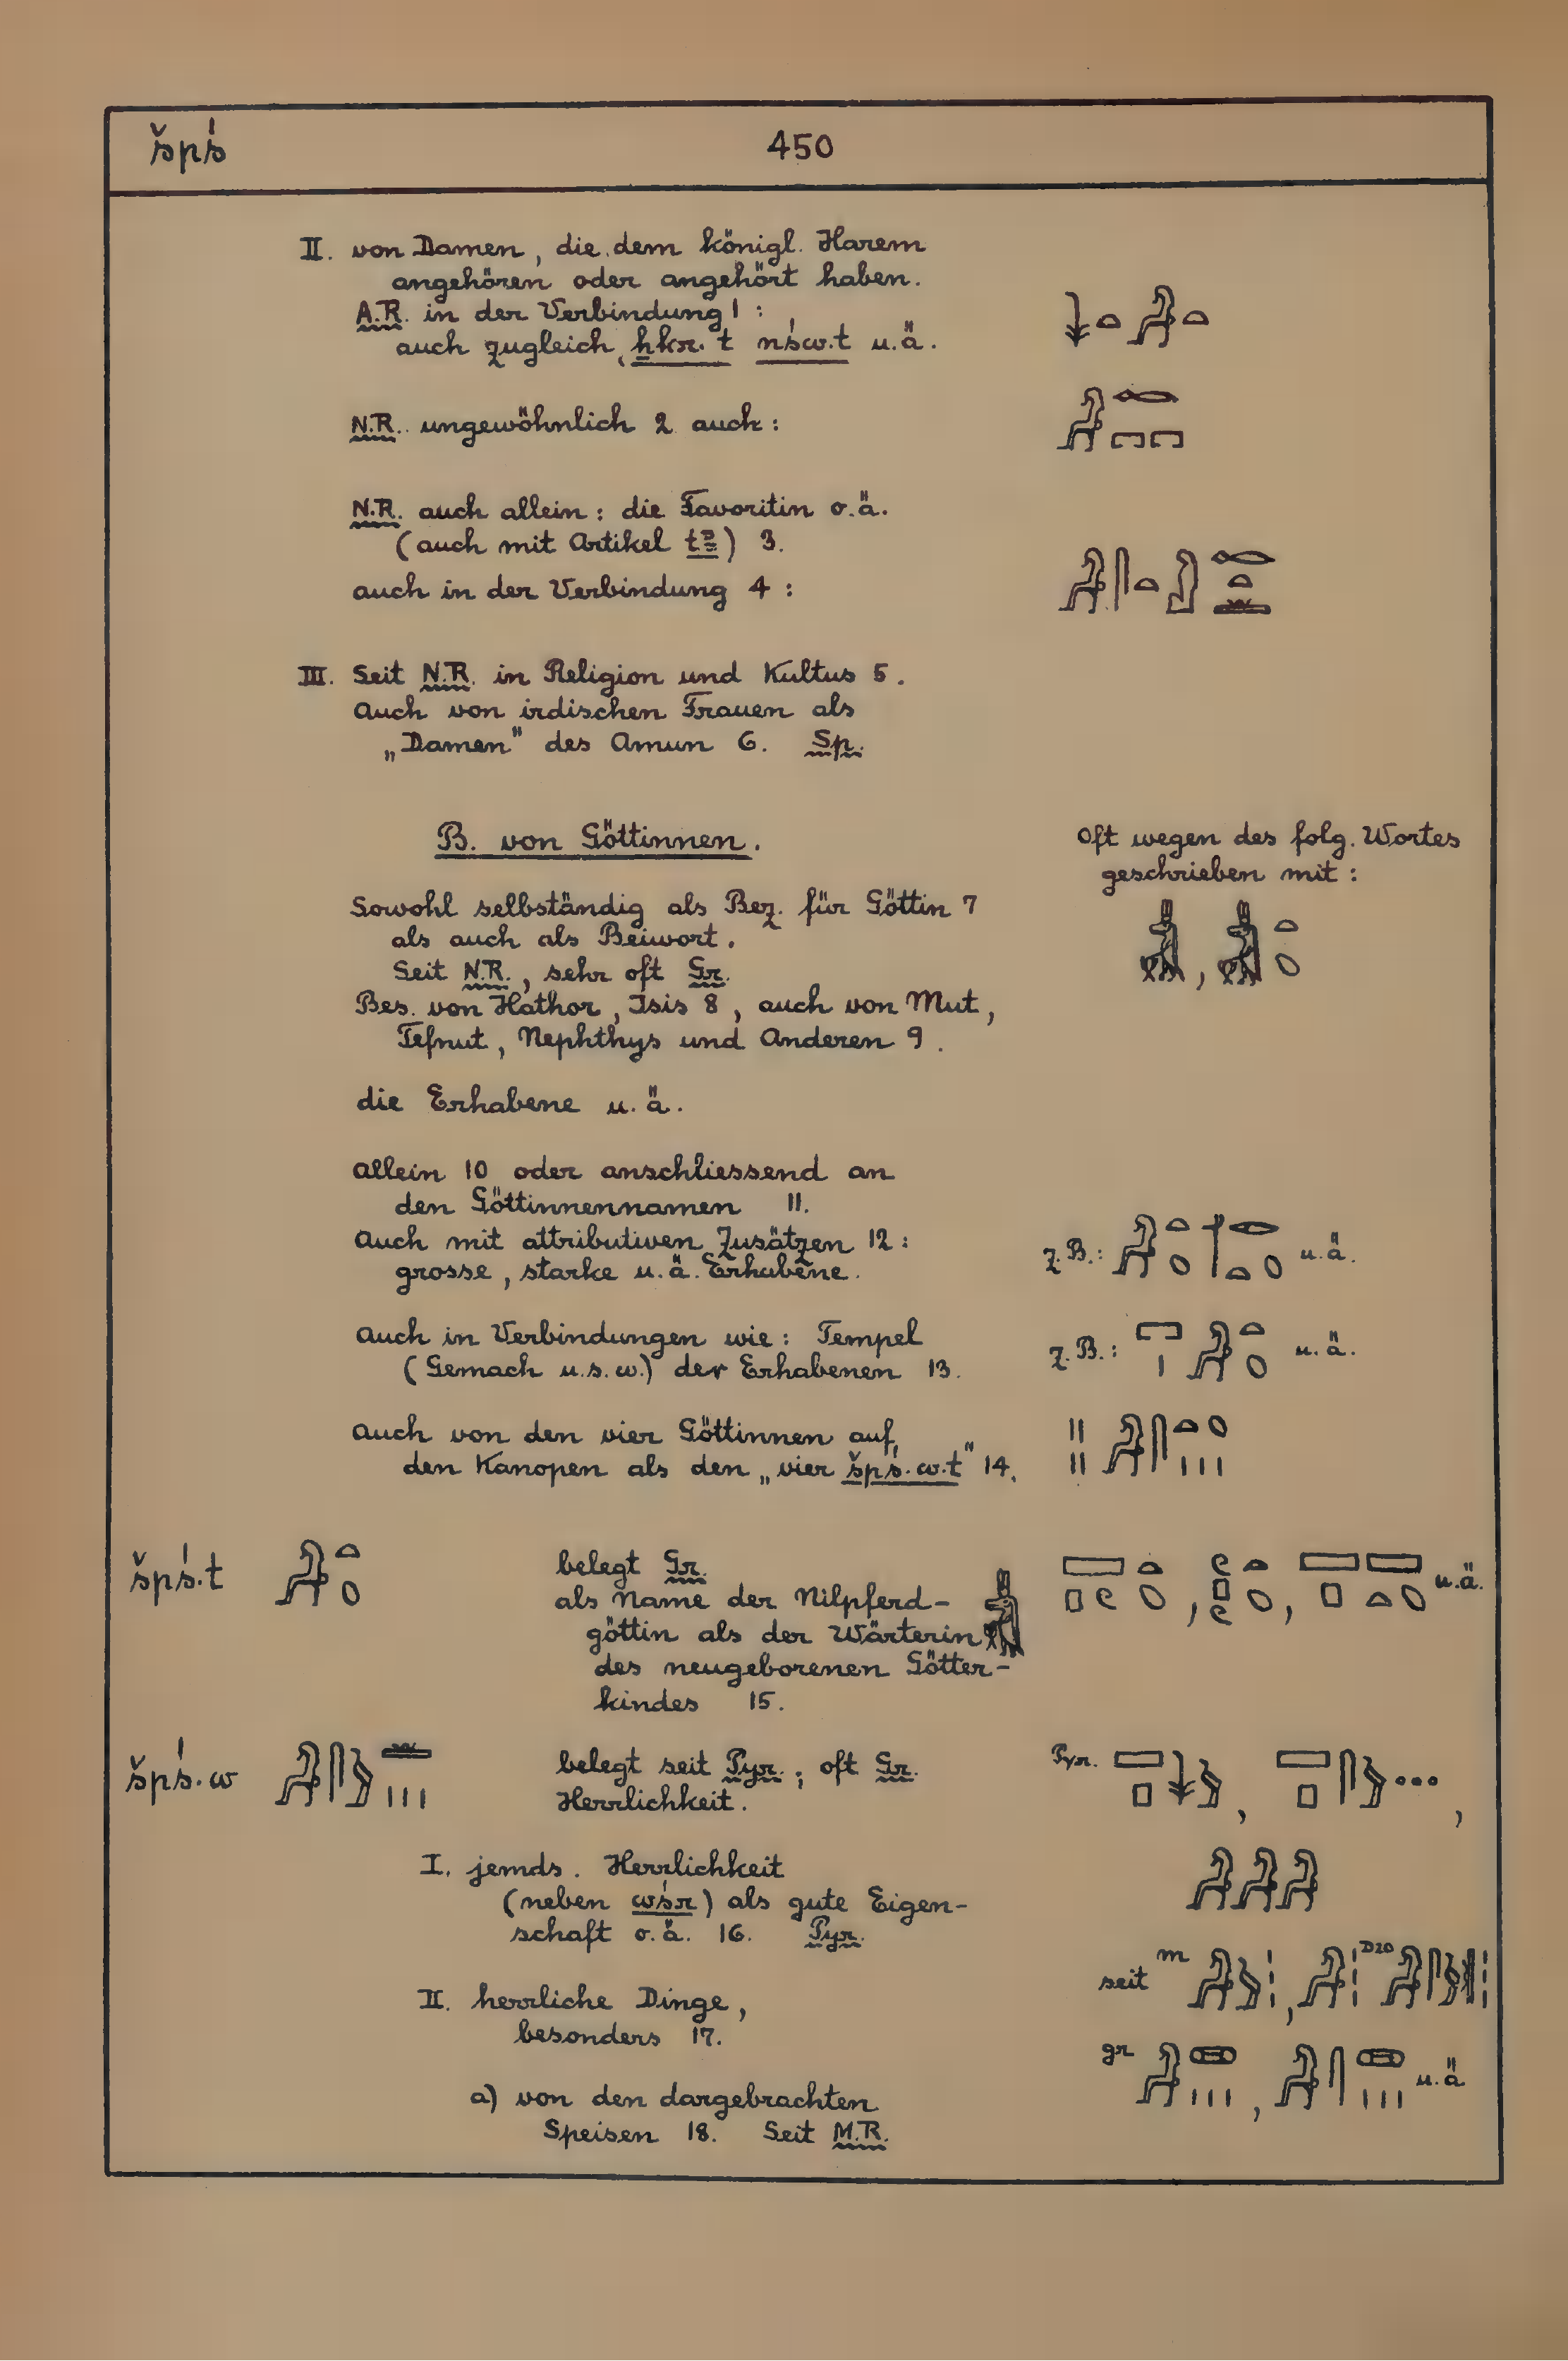 špś 450
II. von Damen, die dem königl. Harem
angehören oder angehört haben.
A.R. in der Verbindung 1 :
auch zugleich ẖkr.t nśw.t u.ä.
N.R. ungewöhnlich 2 auch :
N.R. auch allein : die Favoritin o.ä.
(auch mit Artikel tꜣ) 3.
auch in der Verbindung 4 :
III. Seit N.R. in Religion und Kultus 5.
Auch von irdischen Frauen als
„Damen" des Amun 6. Sp.
B. von Göttinnen.
Oft wegen des folg. Wortes
geschrieben mit :
Sowohl selbständig als Bez. für Göttin 7
als auch als Beiwort.
Seit N.R., sehr oft Gr.
Bes. von Hathor, Isis 8, auch von Mut,
Tefnut, Nephthys und Anderen 9.
die Erhabene u.ä.
allein 10 oder anschliessend an
den Göttinnennamen 11.
Auch mit attributiven Zusätzen 12 :
grosse, starke u.ä. Erhabene.
z.B.: u.ä.
Auch in Verbindungen wie : Tempel
(Gemach u.s.w.) der Erhabenen 13.
z.B.: u.ä.
Auch von den vier Göttinnen auf
den Kanopen als den „vier špś.w.t" 14.
špś.t belegt Gr.
als Name der Nilpferd-
göttin als der Wärterin
des neugeborenen Götter-
kindes 15.
u.ä.
špś.w belegt seit Pyr.; oft Gr.
Herrlichkeit.
Pyr.
I. jemds. Herrlichkeit
(neben wśr) als gute Eigen-
schaft o.ä. 16. Pyr.
seit m D20
II. herrliche Dinge,
besonders 17.
gr u.ä
a) von den dargebrachten
Speisen 18. Seit M.R.